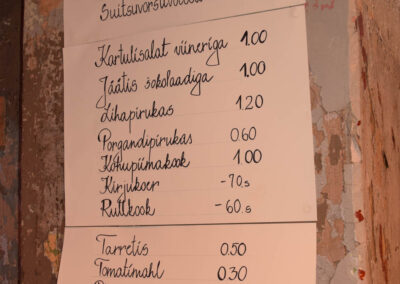 Kartulisalat viineriga 1.00
Jäätis šokolaadiga 1.00
Lihapirukas 1.20
Porgandipirukas 0.60
Kohupiimakook 1 00
Kirjukoer -70.s
Rullkook -60.s
Tarretis 0.50
Tomatimahl 0.30